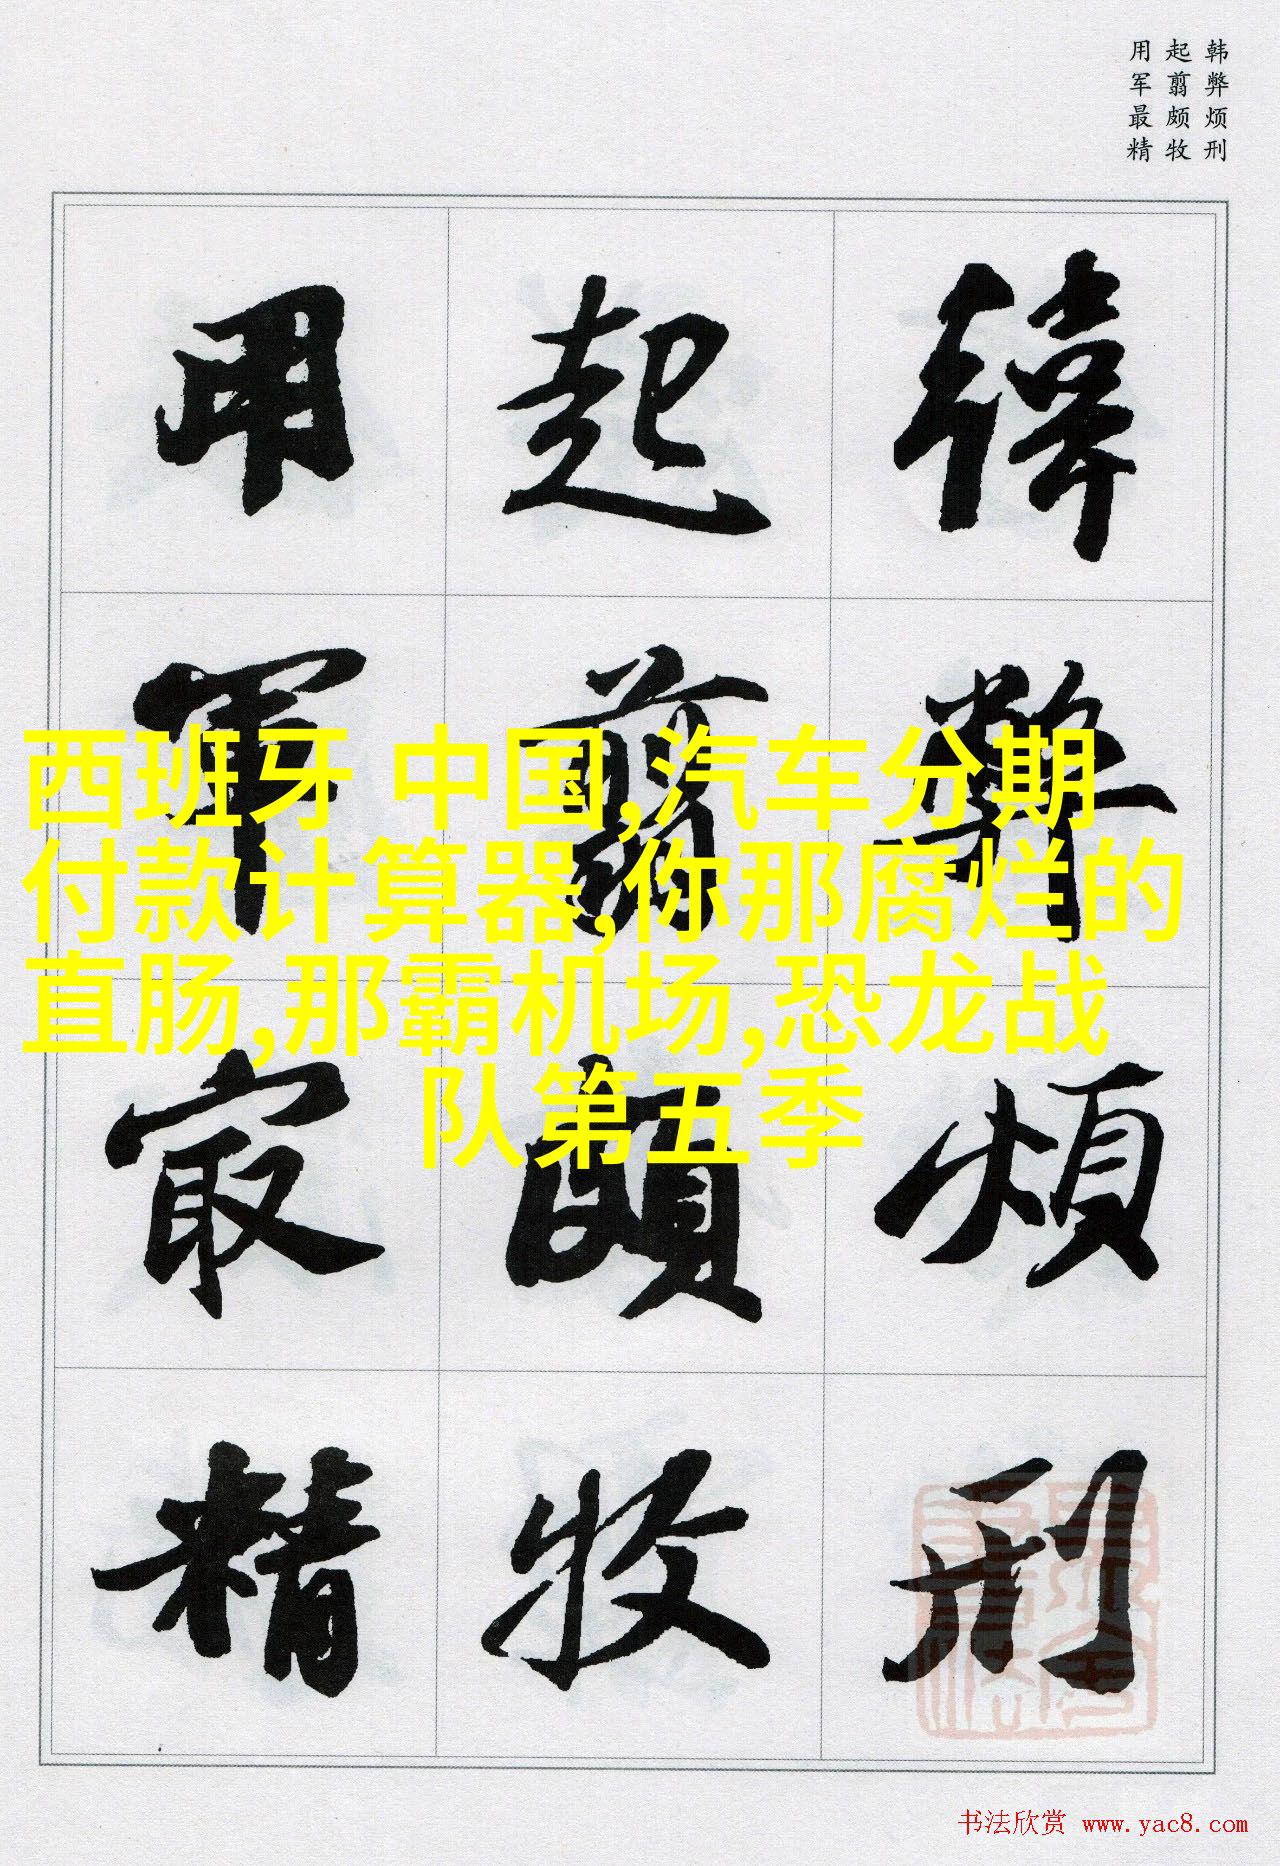 韩弊烦刑
起翦颇牧
用军最精
韩弊烦刑
起翦颇牧
用军最精
西班牙 中国,汽车分期
付款计算器,你那腐烂的
直肠,那霸机场,恐龙战
队第五季
书法欣赏 www.yac8.com